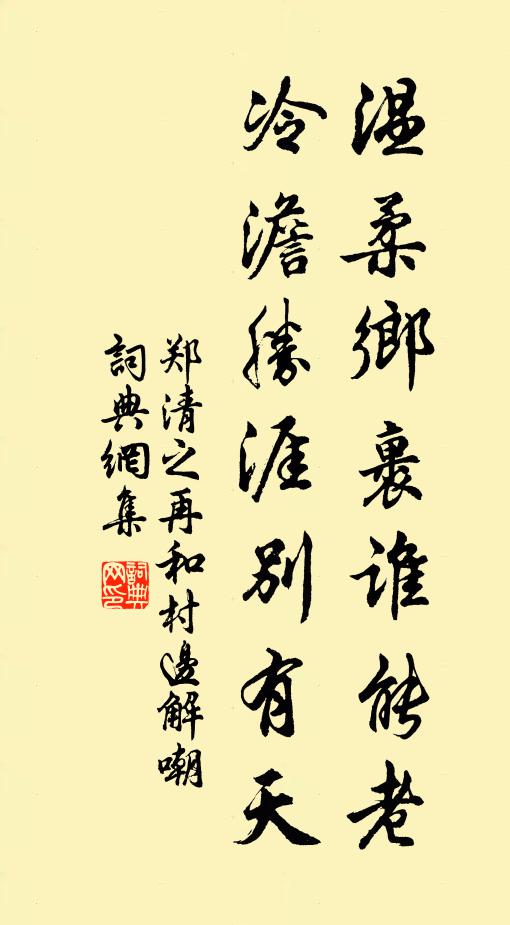 温柔鄉裹誰能老
冷澹勝涯別有天
郑清之再和村邊解嘲
詞典網集
詞典网印